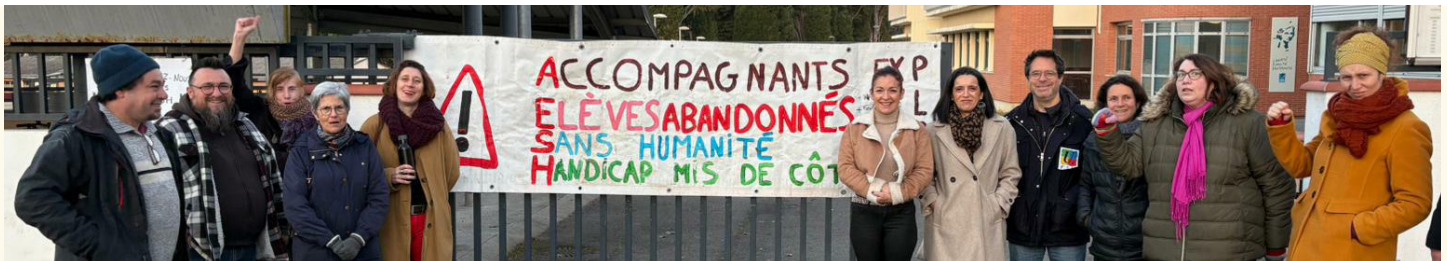 ACCOMPAGNANTS EXP
ELÈVES ABANDONNÉS L
SANS HUMANITÉ
HANDICAP MIS DE CÔT